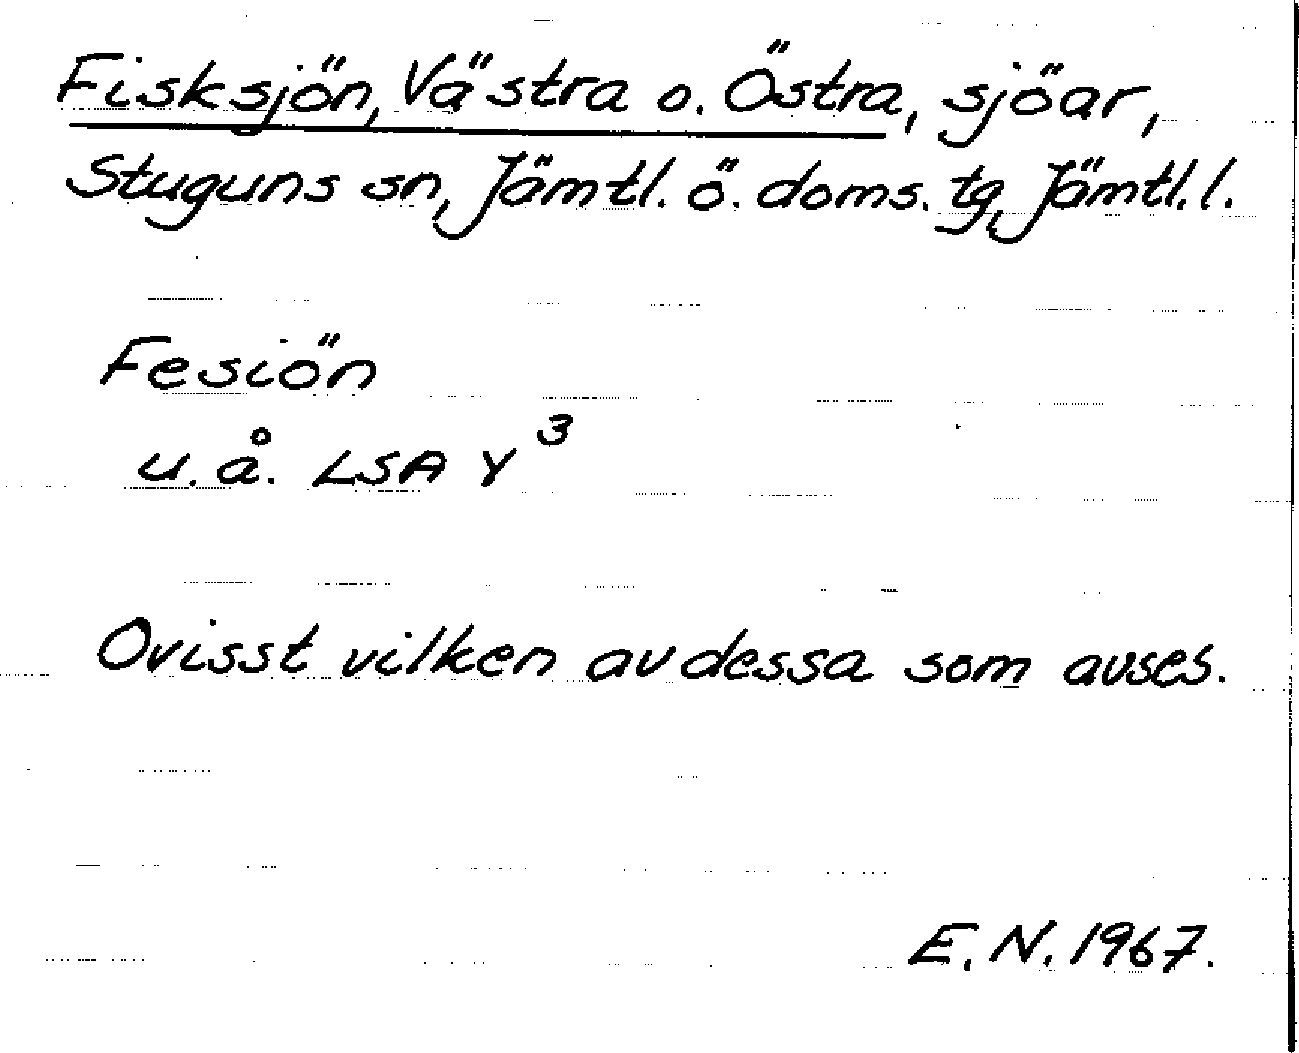 Fisksjön, Västra o. Östra, sjöar,
Stuguns sn, Jämtl. ö. doms. tg, Jämtl. l.
Fesiön
u. å. LSA Y³
Ovisst vilken av dessa som avses.
E. N. 1967.